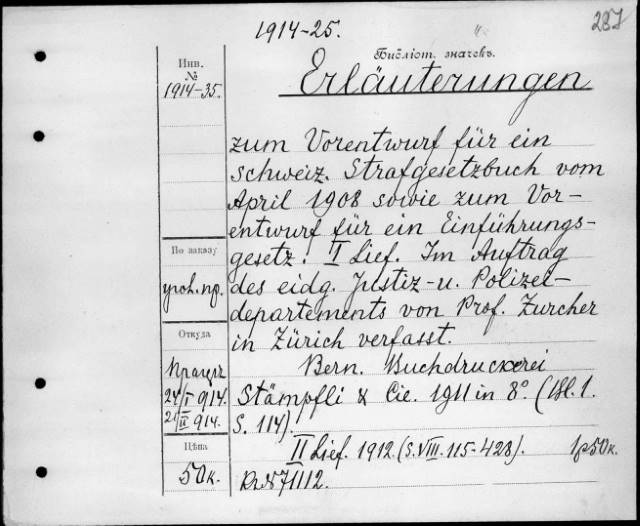 1914-25.
287
Библіот. значекъ.
Инв.
№
1914-35.
Erläuterungen
zum Vorentwurf für ein
schweiz. Strafgesetzbuch vom
April 1908 sowie zum Vor-
entwurf für ein Einführungs-
gesetz. I Lief. Im Auftrag
des eidg. Justiz- u. Polizei-
departements von Prof. Zurcher
in Zürich verfasst.
Bern. Buchdruckerei
Stämpfli & Cie. 1911 in 8°. (Bl. 1.
S. 114).
II Lief. 1912. (S. VIII. 115-428). 1р50к.
По заказу
угол. пр.
Откуда
24/I 914.
21/II 914.
Цѣна
50к.